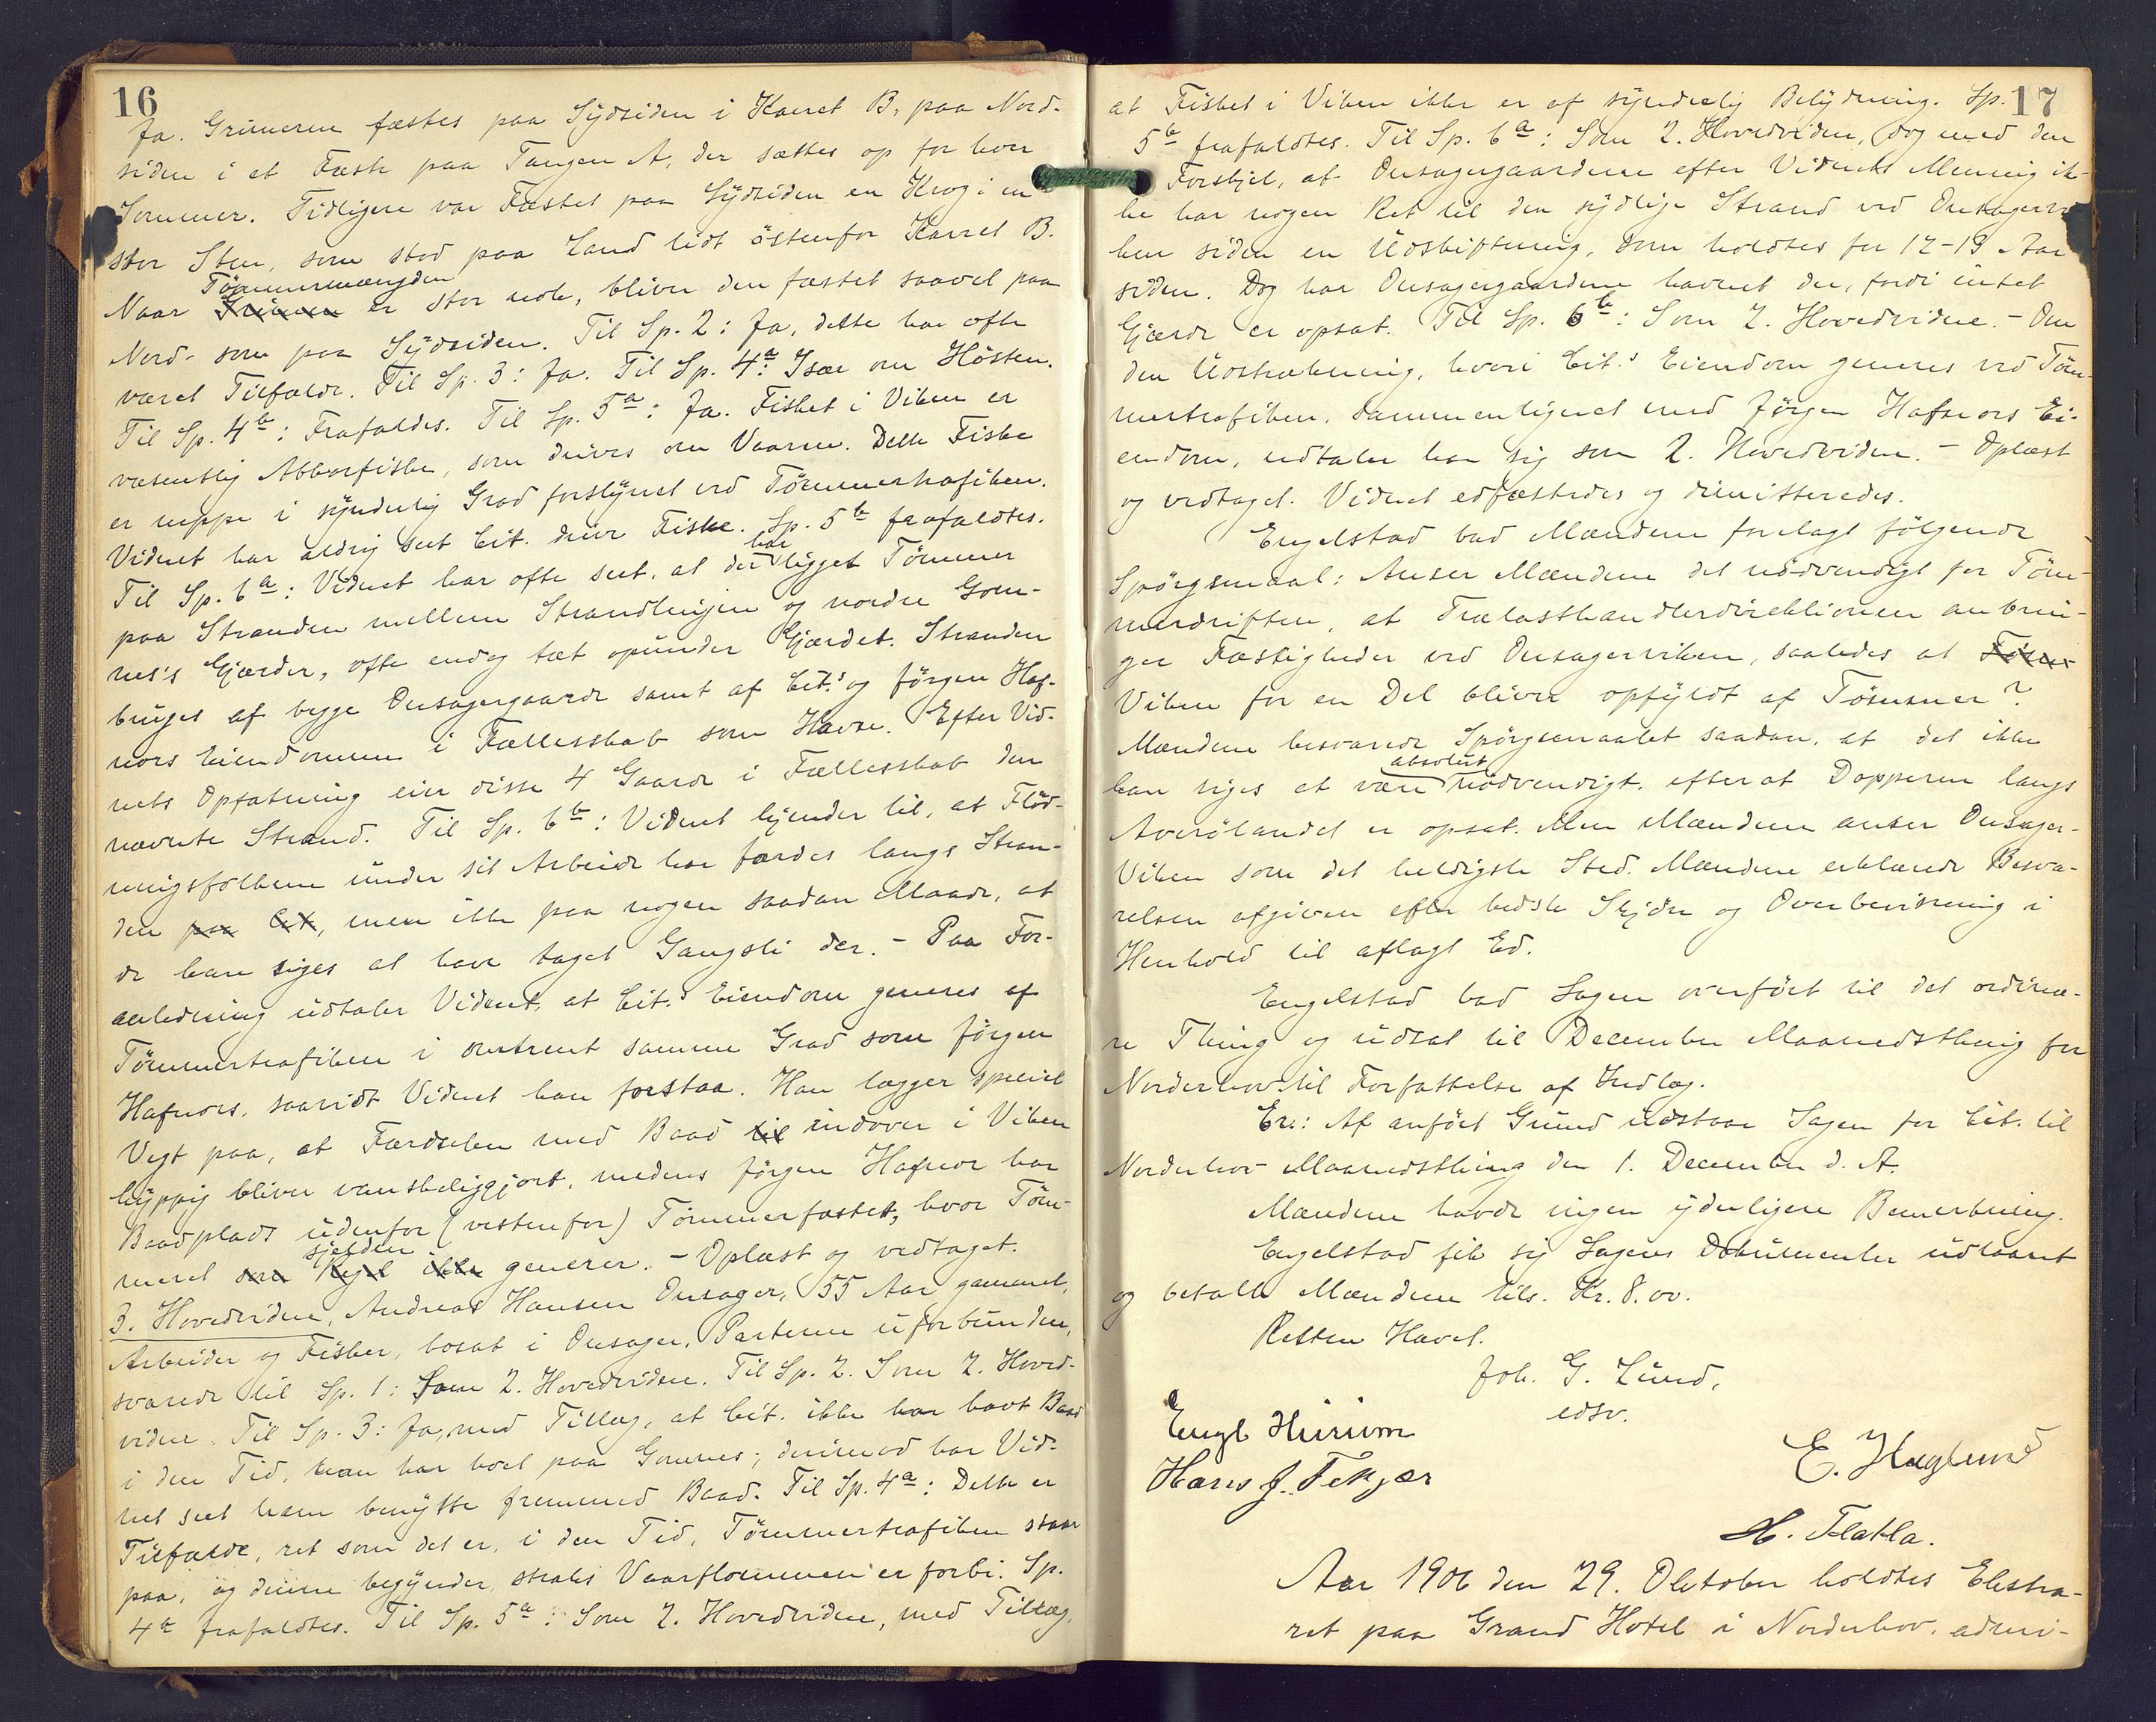 16
Ja. Grimeren fæstes paa Sydsiden i Karret B, paa Nord-
siden i et Fæste paa Tangen A, der sættes op for hver
Sommer. Tidligere var Fæstet paa Sydsiden en Krog i en
stor Sten, som stod paa Land lidt östenfor Karret B.
Tömmermængden
Naar Grimen er stor nok, bliver den fæstet saavel paa
Nord- som paa Sydsiden. Til Sp. 2: Ja, dette har ofte
været Tilfælde. Til Sp. 3: Ja. Til Sp. 4a: Især om Hösten.
Til Sp. 4b: Frafaldes. Til Sp. 5a: Ja. Fisket i Viken er
væsentlig Abborfiske, som drives om Vaaren. Dette Fiske
er neppe i synderlig Grad forstyrret ved Tömmertrafiken.
Vidnet har aldrig seet Cit. drive Fiske. Sp. 5b frafaldtes.
har
Til Sp. 6a: Vidnet har ofte seet, at der ligget Tömmer
paa Stranden mellem Strandlinjen og nordre Gom-
nes's Gjærder, ofte endog tæt opunder Gjærdet. Stranden
bruges af begge Onsagergaarde samt af Cit.s og Jörgen Haf-
nors Eiendomme i Fællesskab som Havne. Efter Vid-
nets Opfatning eier disse 4 Gaarde i Fællesskab den
nævnte Strand. Til Sp. 6b: Vidnet kjender til, at Flöd-
ningsfolkene under sit Arbeide har færdes langs Stran-
den paa Cit, men ikke paa nogen saadan Maade, at
de kan siges at have taget Gangsti der. - Paa For-
anledning udtaler Vidnet, at Cit.s Eiendom generes af
Tömmertrafiken i omtrent samme Grad som Jörgen
Hafnors, saavidt Vidnet kan forstaa. Han lægger speciel
Vegt paa, at Færdselen med Baad til indover i Viken
hyppig bliver vanskeliggjort, medens Jörgen Hafnor har
Baadplads udenfor (vestenfor) Tömmerfæstet, hvor Töm-
sjelden
meret som Regel ikke generer. - Oplæst og vedtaget.
3. Hovedvidne, Andreas Hansen Onsager, 55 Aar gammel,
Arbeider og Fisker, bosat i Onsager, Parterne uforbunden,
svarede til Sp. 1: Som 2. Hovedvidne. Til Sp. 2. Som 2. Hoved-
vidne. Til Sp. 3: Ja, med Tillæg, at Cit. ikke har havt Baad
i den Tid, han har boet paa Gomnes; derimod har Vid-
net seet ham benytte fremmed Baad. Til Sp. 4a: Dette er
Tilfælde, ret som det er, i den Tid, Tömmertrafiken staar
paa, og denne begynder, straks Vaarflommen er forbi. Sp.
4b frafaldtes. Til Sp. 5a: Som 2. Hovedvidne, med Tillæg,
17
at Fisket i Viken ikke er af synderlig Betydning. Sp.
5b frafaldtes. Til Sp. 6a: Som 2. Hovedvidne, dog med den
Forskjel, at Onsagergaardene efter Vidnets Mening ik-
ke har nogen Ret til den sydlige Strand ved Onsagervi-
ken siden en Udskiftning, som holdtes for 12-13 Aar
siden. Dog har Onsagergaardene havnet der, fordi intet
Gjærde er opsat. Til Sp. 6b: Som 2. Hovedvidne. - Om
den Udstrækning, hvori Cit.s Eiendom generes ved Töm-
mertrafiken, sammenlignet med Jörgen Hafnors Ei-
endom, udtaler han sig som 2. Hovedvidne. - Oplæst
og vedtaget. Vidnet edfæstedes og dimitteredes.
Engelstad bad Mændene forelagt fölgende
Spörgsmaal: Anser Mændene det nödvendigt for Töm-
merdriften, at Trælasthandlerdirektionen anbrin-
ger Fæstigheder ved Onsagerviken, saaledes at Töm-
Viken for en Del bliver opfyldt af Tömmer?
Mændene besvarede Spörgsmaalet saadan, at det ikke
absolut
kan siges at være nödvendigt, efter at Dopperne langs
Averölandet er opsat. Men Mændene anser Onsager-
Viken som det heldigste Sted. Mændene erklærede Besva-
relsen afgiven efter bedste Skjön og Overbevisning i
Henhold til aflagt Ed.
Engelstad bad Sagen overfört til det ordinæ-
re Thing og udsat til December Maanedsthing for
Norderhov til Forfattelse af Indlæg.
Er.: Af anfört Grund udstaar Sagen for Cit. til
Norderhov Maanedsthing den 1. December d. A.
Mændene havde ingen yderligere Bemerkning.
Engelstad fik sig Sagens Dokumenter udlaant
og betalte Mændene tils. Kr. 8.00.
Retten Hævet.
Joh. G. Lund,
edsv.
Engb Hurum
Hans J. Fekjær
E. Haglund
H. Flatla.
Aar 1906 den 29. Oktober holdtes Ekstra-
ret paa Grand Hotel i Norderhov, admi-